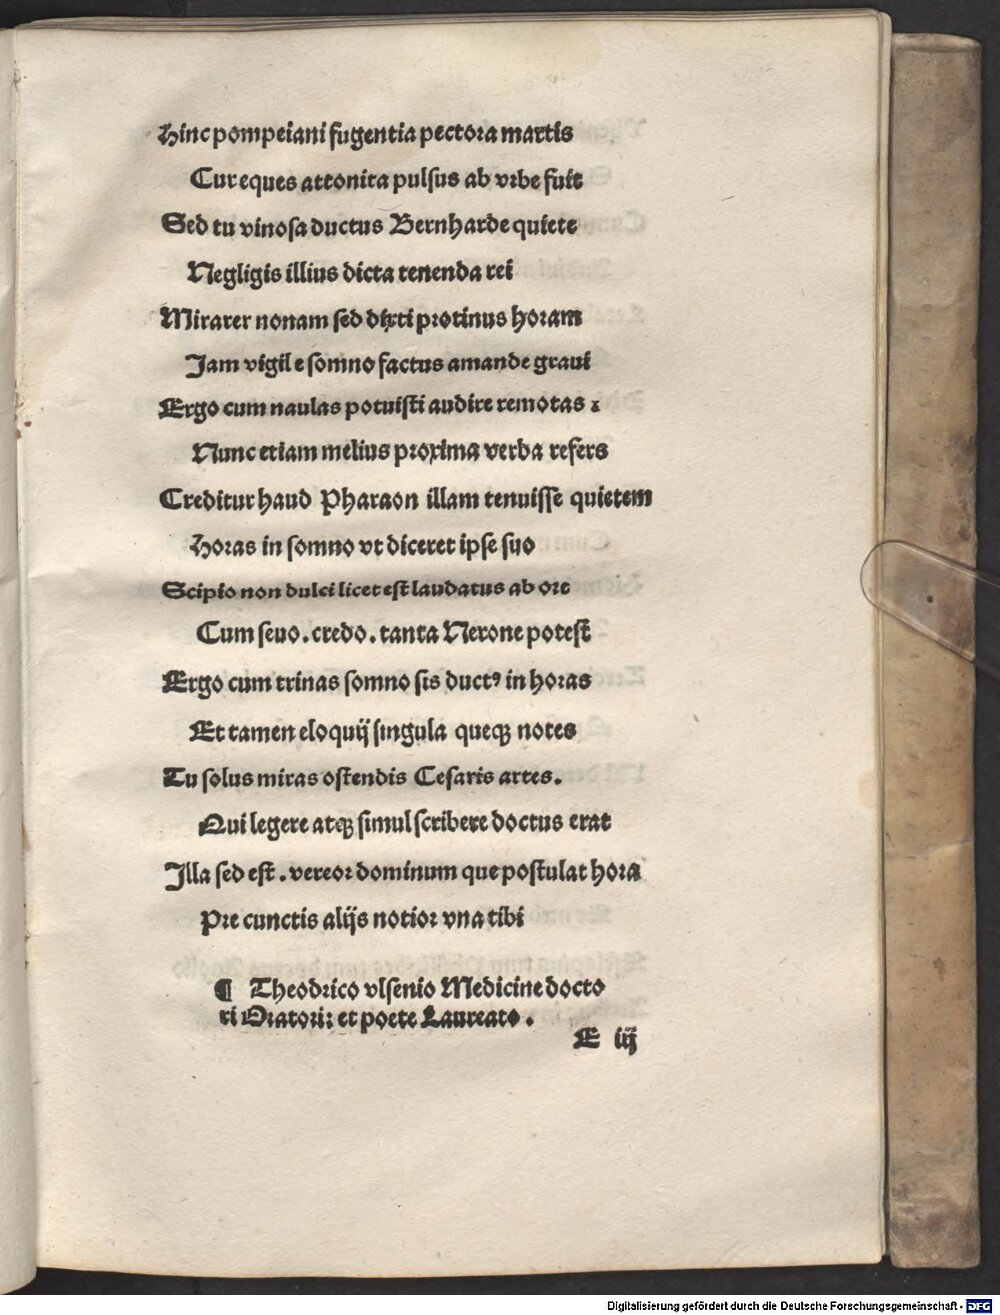 Hinc pompeiani fugentia pectora martis
Cur eques attonita pulsus ab vrbe fuit
Sed tu vinosa ductus Bernharde quiete
Negligis illius dicta tenenda rei
Mirarer nonam sed dixti protinus horam
Jam vigil e somno factus amande graui
Ergo cum naulas potuisti audire remotas :
Nunc etiam melius proxima verba refers
Creditur haud Pharaon illam tenuisse quietem
Horas in somno vt diceret ipse suo
Scipio non dulci licet est laudatus ab ore
Cum seuo . credo . tanta Nerone potest
Ergo cum trinas somno sis ductꝰ in horas
Et tamen eloquij singula queqꝫ notes
Tu solus miras ostendis Cesaris artes .
Qui legere atqꝫ simul scribere doctus erat
Illa sed est . vereor dominum que postulat hora
Pre cunctis alijs notior vna tibi
¶ Theodrico vlsenio Medicine docto
ri Oratori: et poete Laureato .
E iij
Digitalisierung gefördert durch die Deutsche Forschungsgemeinschaft - DFG